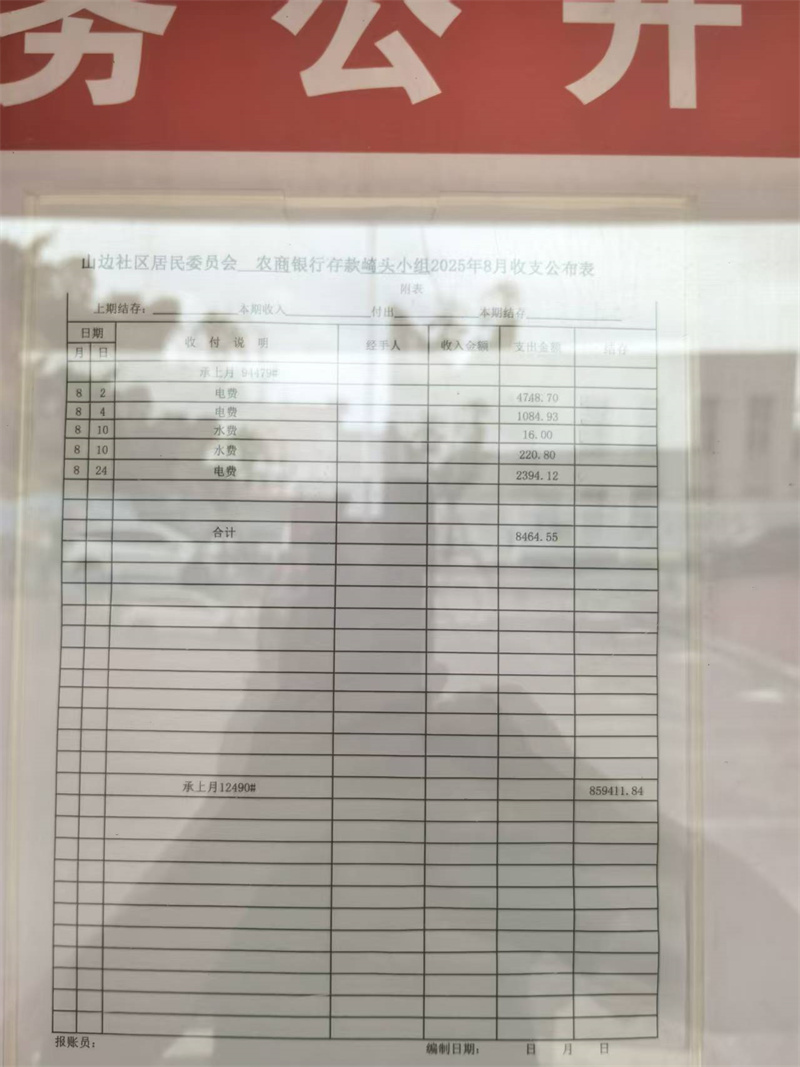 务公开
山边社区居民委员会 农商银行存款崎头小组2025年8月收支公布表
附表
上期结存： 本期收入 付出 本期结存
日期 收 付 说 明 经手人 收入金额 支出金额 结存
月 日
承上月 94479#
8 2 电费 4748.70
8 4 电费 1084.93
8 10 水费 16.00
8 10 水费 220.80
8 24 电费 2394.12
合计 8464.55
承上月12490# 859411.84
报账员： 编制日期： 日 月 日